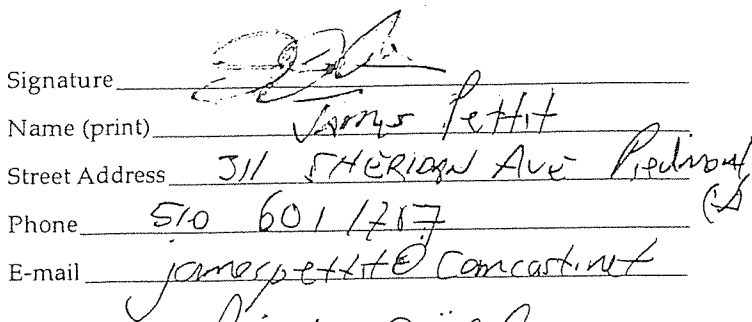 Signature
Name (print) James Pettit
Street Address 311 SHERIDAN AVE Piedmont
CA
Phone 510 601 1787
E-mail jamespettit@comcast.net